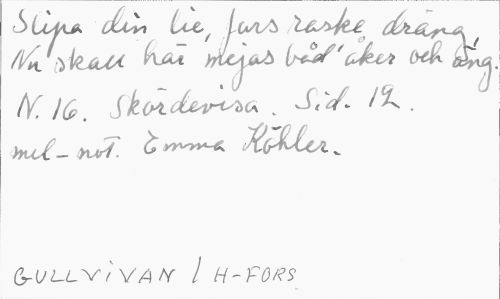 Slipa din lie, fars raske dräng,
Nu skall här mejas båd' åker och äng.
N. 16. Skördevisa. Sid. 12.
mel-not. Emma Köhler.
GULLVIVAN / H-FORS